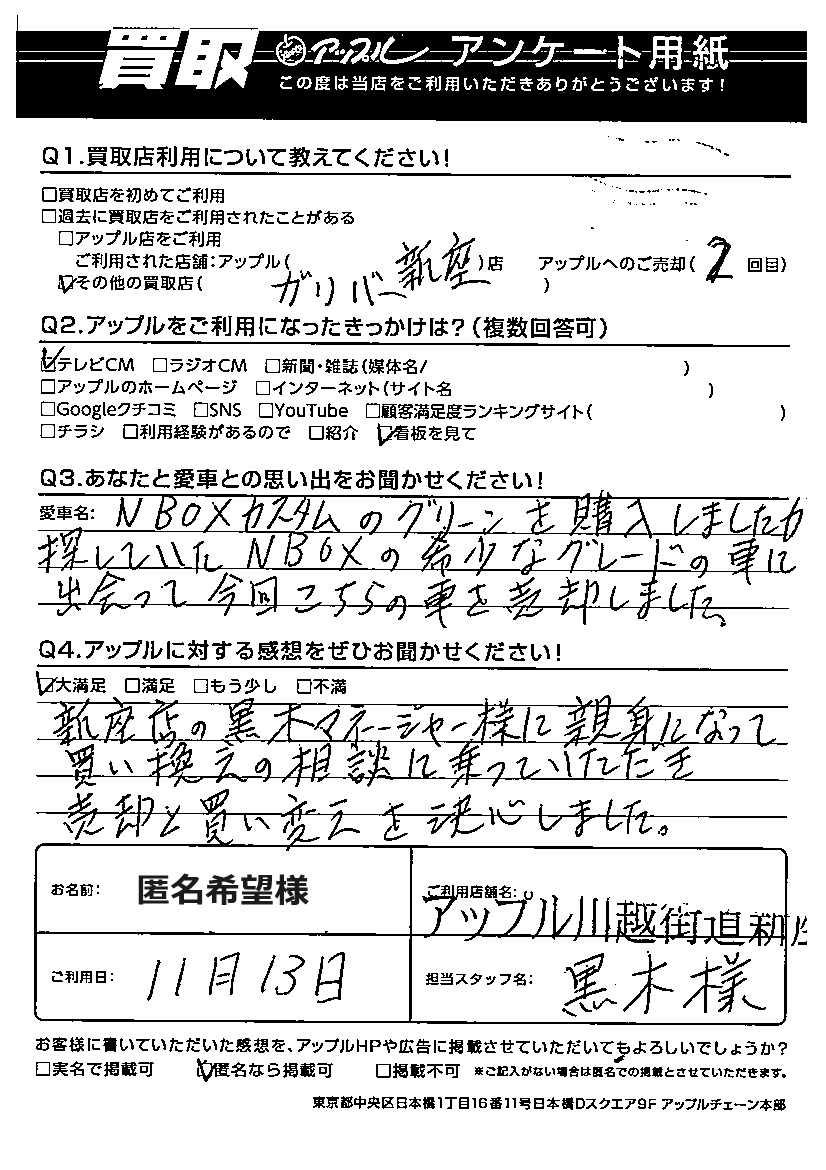 買取 アップル アンケート用紙
この度は当店をご利用いただきありがとうございます!
Q1.買取店利用について教えてください!
□買取店を初めてご利用
□過去に買取店をご利用されたことがある
□アップル店をご利用
ご利用された店舗:アップル( 新座 )店 アップルへのご売却( 2 回目)
☑その他の買取店( ガリバー )
Q2.アップルをご利用になったきっかけは?(複数回答可)
☑テレビCM □ラジオCM □新聞・雑誌(媒体名/ )
□アップルのホームページ □インターネット(サイト名 )
□Googleクチコミ □SNS □YouTube □顧客満足度ランキングサイト( )
□チラシ □利用経験があるので □紹介 ☑看板を見て
Q3.あなたと愛車との思い出をお聞かせください!
愛車名: NBOXカスタムのグリーンを購入しましたが
探していたNBOXの希少なグレードの車に
出会って今回こちらの車を売却しました。
Q4.アップルに対する感想をぜひお聞かせください!
☑大満足 □満足 □もう少し □不満
新座店の黒木マネージャー様に親身になって
買い換えの相談に乗っていただき
売却と買い変えを決心しました。
お名前: 匿名希望様
ご利用店舗名: アップル川越街道新座
ご利用日: 11月13日
担当スタッフ名: 黒木様
お客様に書いていただいた感想を、アップルHPや広告に掲載させていただいてもよろしいでしょうか?
□実名で掲載可 ☑匿名なら掲載可 □掲載不可 ※ご記入がない場合は匿名での掲載とさせていただきます。
東京都中央区日本橋1丁目16番11号日本橋Dスクエア9F アップルチェーン本部